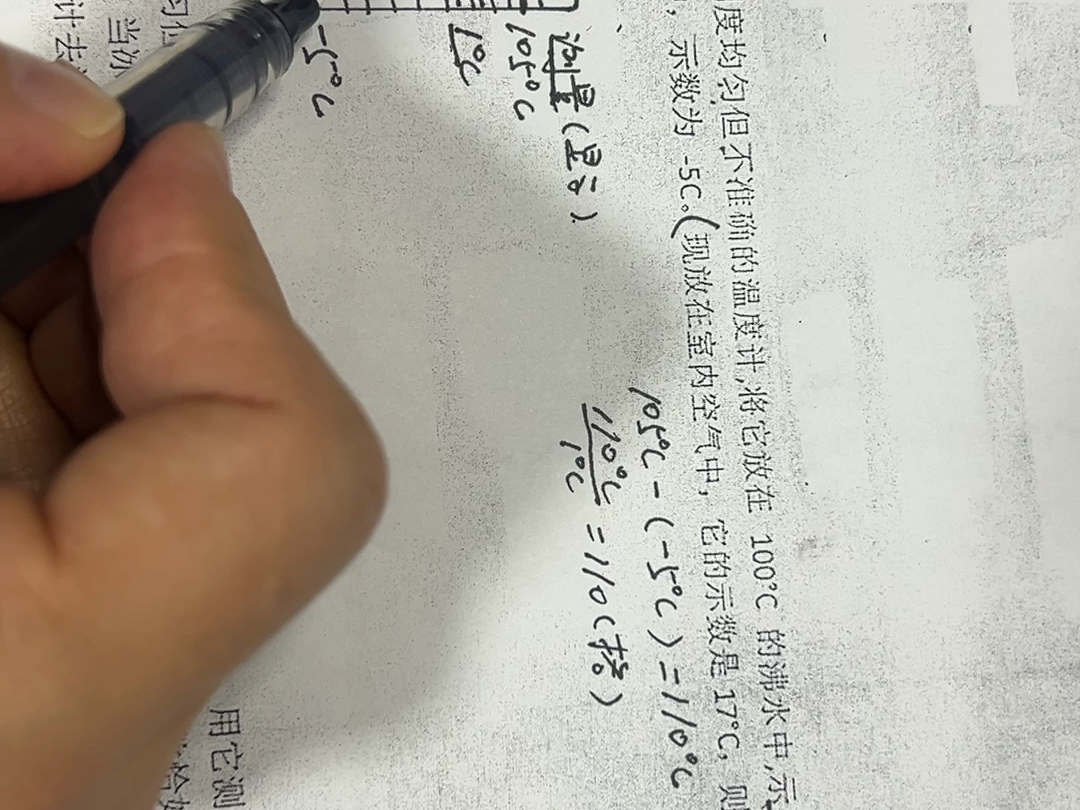 度均匀但不准确的温度计,将它放在 100°C 的沸水中,示
，示数为 -5C。(现放在室内空气中，它的示数是17°C，则
105°C - (-5°C) = 110°C
110°C
1°C
= 110(格)
测量(显示)
105°C
1°C
-5°C
用它测
当冰
计去